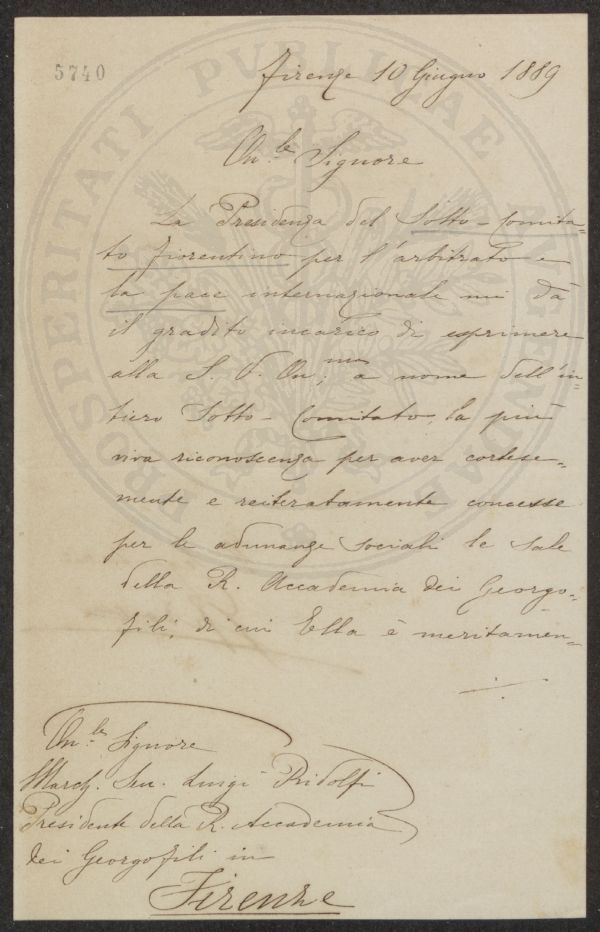 5740
Firenze 10 Giugno 1889
On.le Signore
La Presidenza del Sotto-Comita-
to fiorentino per l'arbitrato e
la pace internazionale mi dà
il gradito incarico di esprimere
alla S. V. On.ma, a nome dell'in-
tiero Sotto-Comitato, la più
viva riconoscenza per aver cortese-
mente e reiteratamente concesse
per le adunanze sociali le sale
della R. Accademia dei Georgo-
fili, di cui Ella è meritamen-
On.le Signore
March. Sen. Luigi Ridolfi
Presidente della R. Accademia
dei Georgofili in
Firenze
PROSPERITATI PVBLICAE AVGENDAE